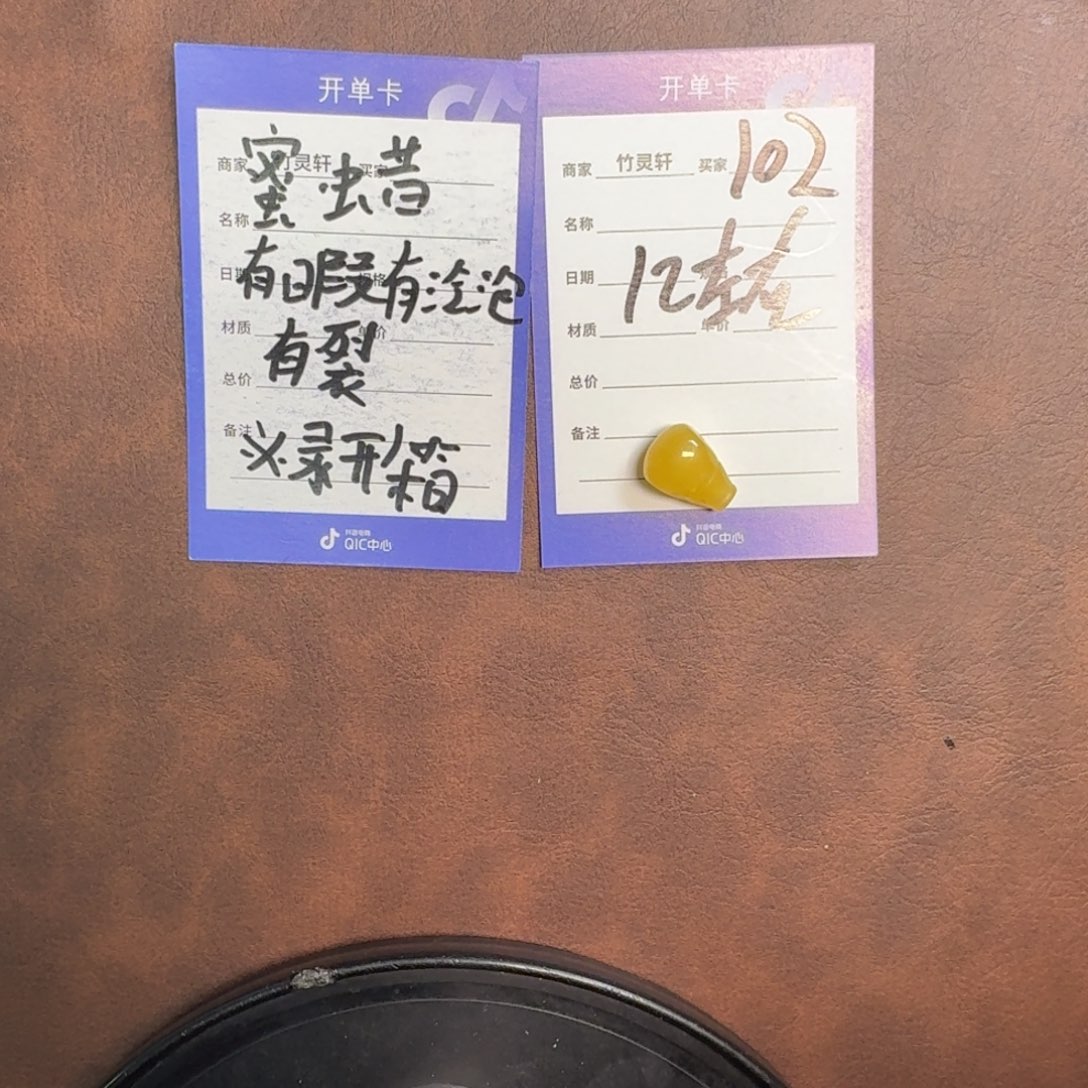 开单卡
商家 竹灵轩 买家
蜜虫昔
名称
日期
有日叚有泣泡
材质 单价
有裂
总价
备注
必录开箱
抖音电商
QIC中心
开单卡
商家 竹灵轩 买家 102
名称
日期
材质 单价
总价
备注
抖音电商
QIC中心